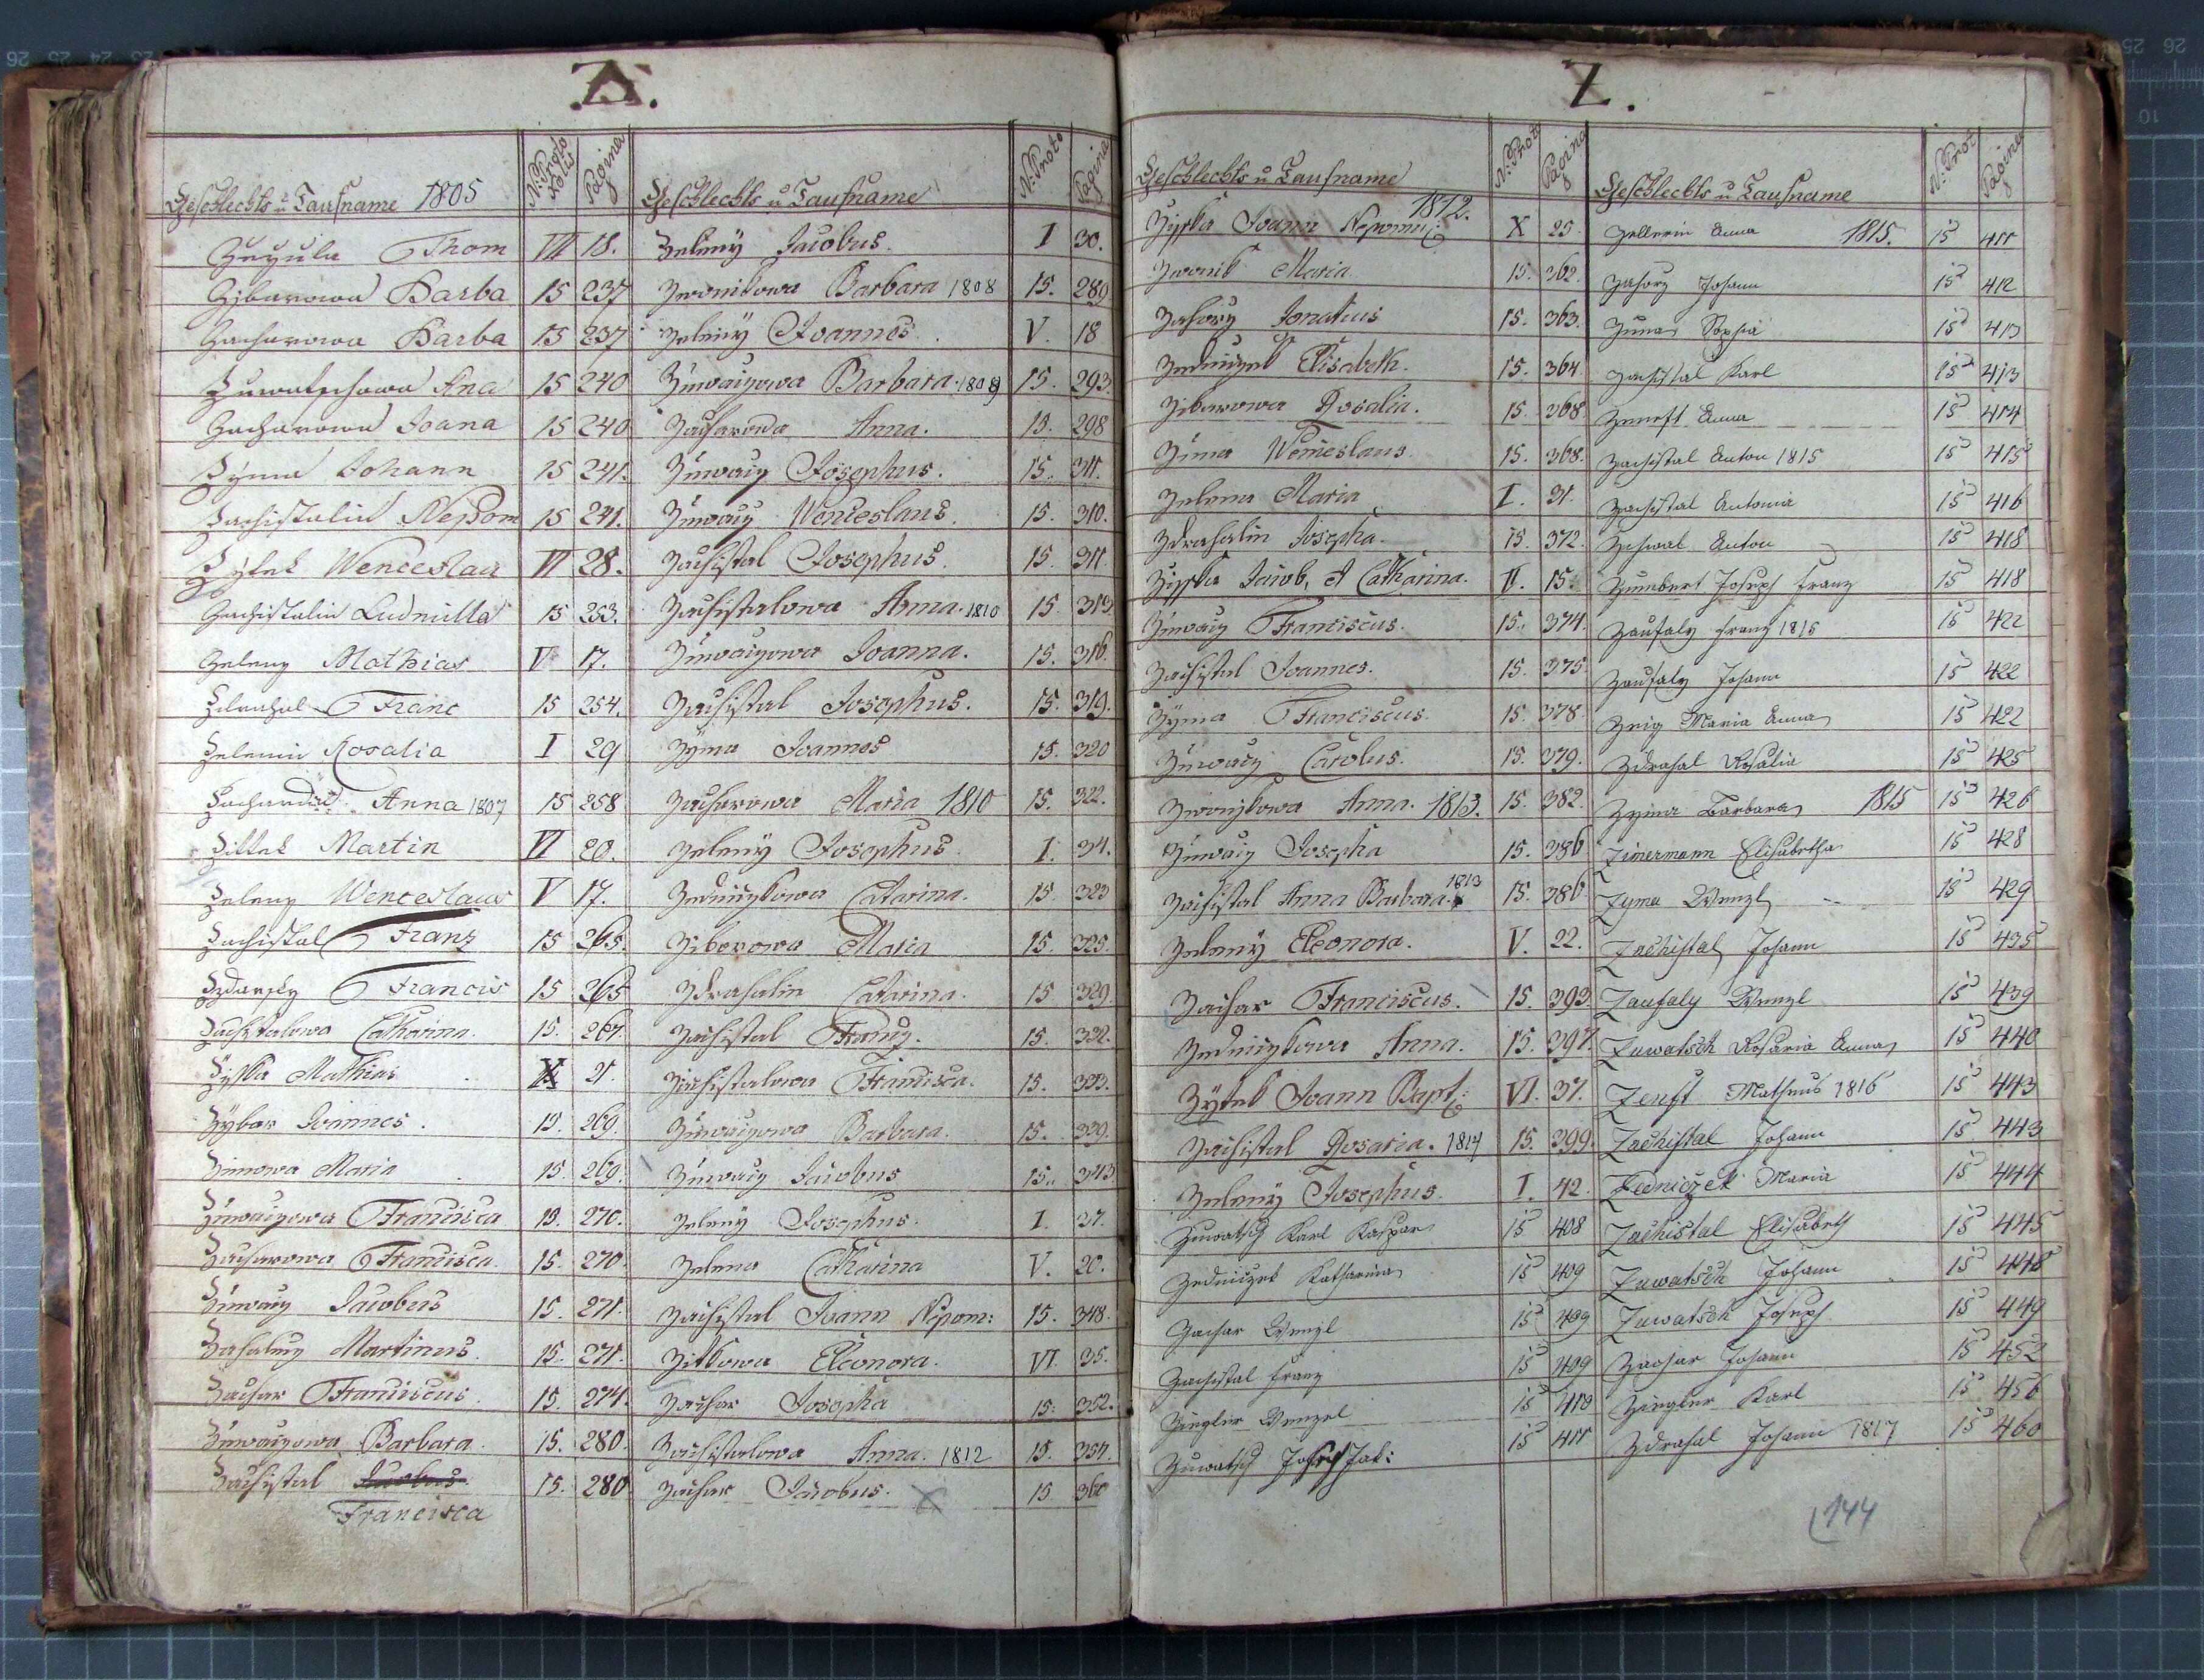 Z.
Geschlechts u Taufname 1805 N. Proto Kolis Pagina
Zezula Thom VII 18.
Zibarowa Barba 15 237
Zacharowa Barba 15 237
Zuwatschowa Ana 15 240
Zacharowa Joana 15 240
Zyma Johann 15 241.
Zachistalin Nepom 15 241.
Zytek Wenceslau VI 28.
Zachistalin Ludmilla 15 253.
Zeleny Mathias V 17.
Zdrahal Franc 15 254.
Zelenin Rosalia I 29
Anna 1807 15 258
Zittek Martin VI 20.
Zeleny Wenceslaus V 17.
Zachistal Franz 15 265.
Zdarsky Francis 15 265
Zachistalowa Catharina. 15. 267.
Zyska Mathias 21.
Zybar Joannes. 15. 269.
Zimowa Maria 15. 269.
Ziwaczowa Francisca 15. 270.
Zacharowa Francisca. 15. 270.
Jacobus 15. 271.
Zahalny Martinus. 15. 271.
Zachar Franciscus. 15. 274.
Barbara. 15. 280.
Zachistal Jacobus 15. 280
Francisca
Geschlechts u Taufname N. Proto Pagina
Zeleny Jacobus. I 30.
Zwonikowa Barbara 1808 15. 289
Zeleny Joannes. V. 18
Barbara. 1809 15. 293.
Zacharowa Anna. 15. 298
Josephus. 15. 311.
Wenceslaus. 15. 310.
Zachistal Josephus. 15. 311
Zachistalowa Anna. 1810 15. 313
Joanna. 15. 316.
Zachistal Josephus. 15. 319.
Zyma Joannes 15. 320
Zacharowa Maria 1810 15. 322.
Zeleny Josephus I. 34.
Zedniczkowa Catarina. 15. 323
Ziborowa Maria 15. 325.
Zdrahalin Catarina. 15. 329.
Zachistal Franz. 15. 332.
Zachistalowa Francisca. 15. 333.
Barbara. 15. 339.
Jacobus 15. 343
Zeleny Josephus. I. 37.
Zelena Catharina V. 20.
Zachistal Joann Nepom: 15. 348.
Zitkowa Eleonora. VI. 35.
Zachar Josepha 15. 352.
Zachistalowa Anna. 1812 15. 354.
Zachar Jacobus. 15 360
Z.
Geschlechts u Taufname N. Proto Pagina
1812.
Zyska Joann Nepomuc: X 25.
Zwonik Maria 15. 362.
Zahorz Ignatius 15. 363.
Zedniczek Elisabeth. 15. 364
Zibarowa Rosalia. 15. 368
Zima Wenceslaus. 15. 368.
Zelena Maria I. 31.
Zdrahalin Josepha. 15. 372.
Zyska Jacob, et Catharina. V. 15.
Franciscus. 15. 374.
Zachistal Joannes. 15. 375.
Zyma Franciscus. 15. 378.
Carolus. 15. 379.
Zwonikowa Anna. 1813. 15. 382.
Josepha 15. 386
Zachistal Anna Barbara. 1813 15. 386
Zeleny Eleonora. V. 22.
Zachar Franciscus. 15. 393.
Zedniczkowa Anna. 15. 397.
Zytek Joann Bapt: VI. 37.
Zachistal Rosaria. 1814 15. 399.
Zeleny Josephus. I. 42.
Zuwatsch Karl Kaspar 15 408
Zedniczek Katharina 15 409
Zachar Wenzl 15 409
Zachistal Franz 15 409
Ziegler Wenzel 15 410
Zuwatsch Joseph Jak: 15 411
Geschlechts u Taufname N. Prot Pagina
Zellerin Anna 1815. 15 411
Zahorz Johann 15 412
Zuna Sophia 15 413
Zachistal Karl 15 413
Zenoft Anna 15 414
Zachistal Anton 1815 15 415
Zachistal Antonia 15 416
Anton 15 418
Zumbert Joseph Franz 15 418
Zaufaly Franz 1815 15 422
Zaufaly Johann 15 422
Maria Anna 15 422
Zdrahal Rosalia 15 425
Zyma Barbara 1815 15 426
Zimermann Elisabetha 15 428
Zyma Wenzl 15 429
Zachistal Johann 15 435
Zaufaly Wenzl 15 439
Zuwatsch Rosaria Anna 15 440
Zenft Matheus 1816 15 443
Zachistal Johann 15 443
Zedniczek Maria 15 444
Zachistal Elisabeth 15 445
Zuwatsch Johann 15 448
Zuwatsch Joseph 15 449
Zachar Johann 15 452
Ziegler Karl 15 456
Zdrahal Johann 1817 15 460
144